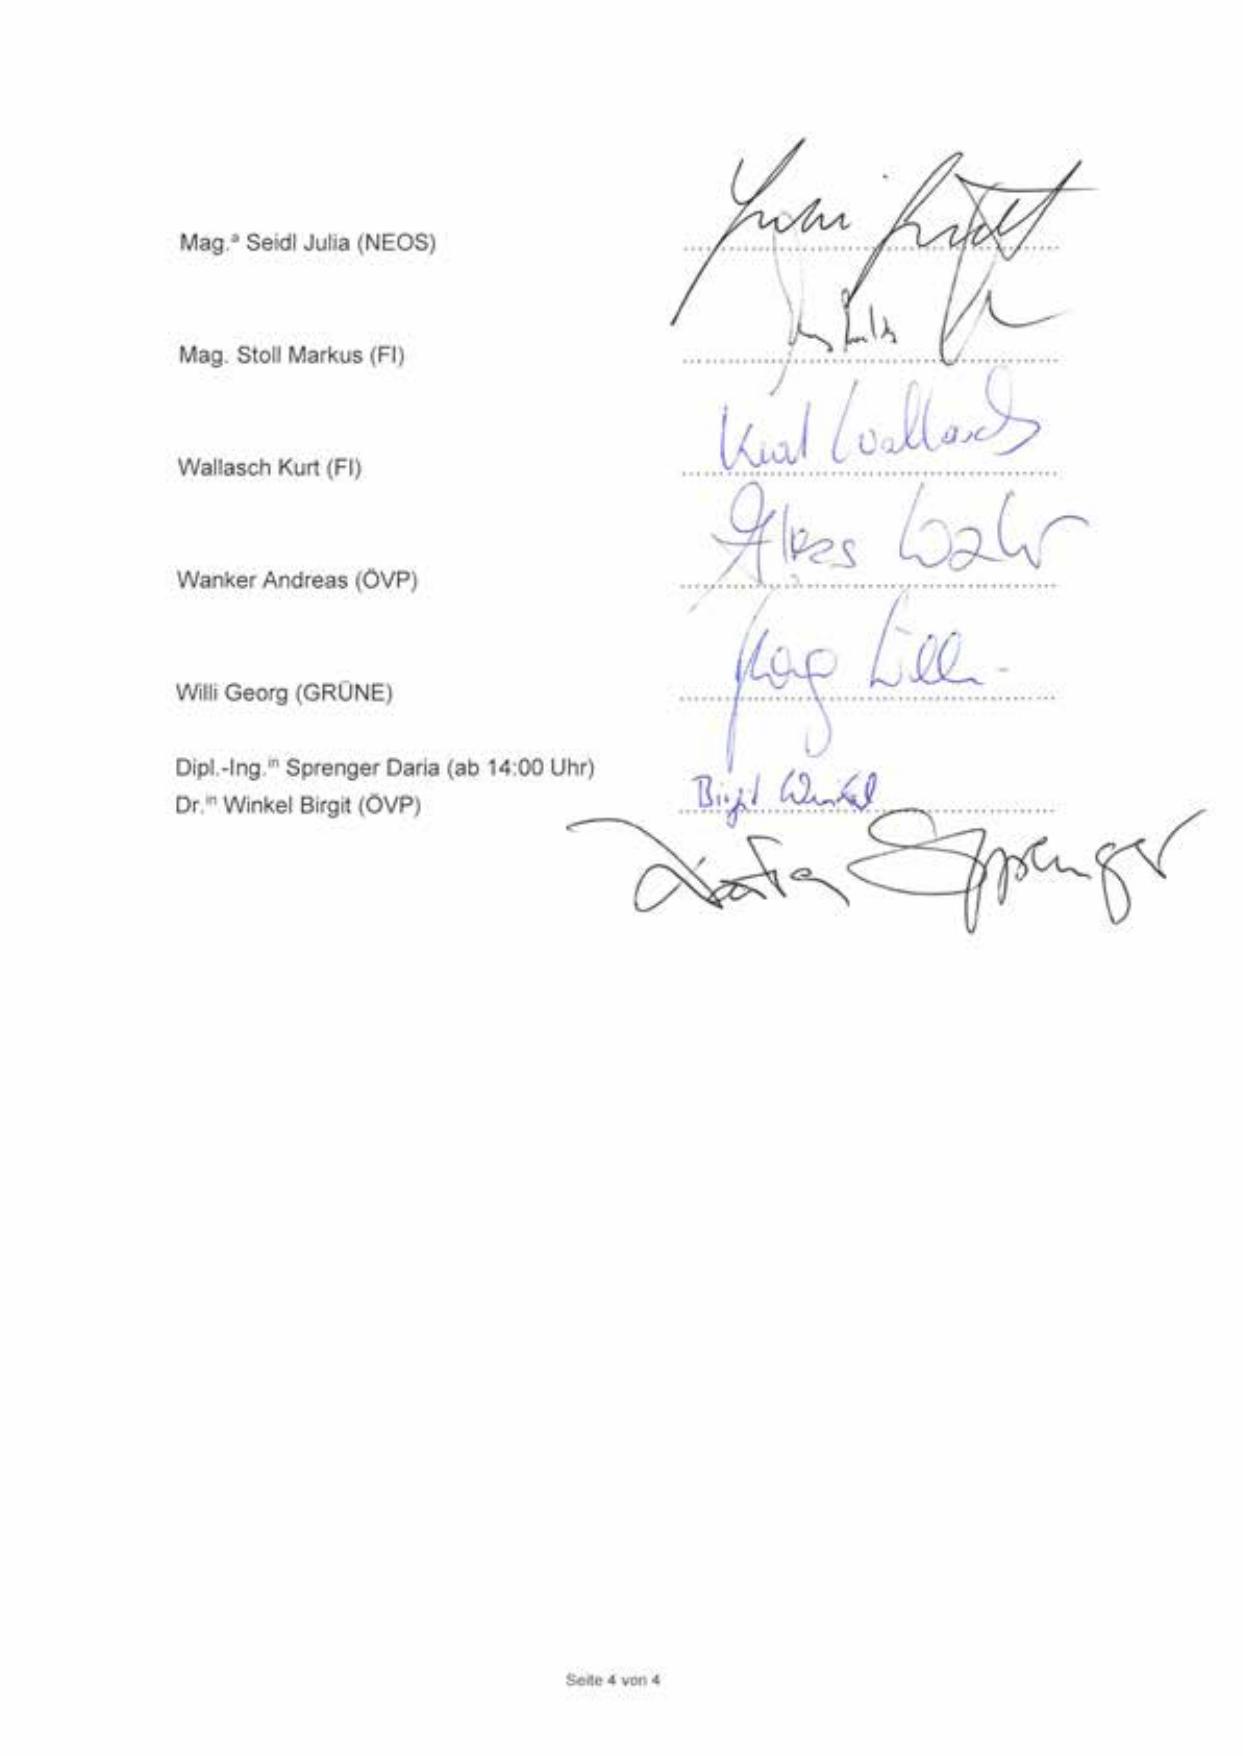 Mag.ª Seidl Julia (NEOS)
Mag. Stoll Markus (FI)
Kurt Wallasch
Wallasch Kurt (FI)
Wanker Andreas (ÖVP)
Georg Willi
Willi Georg (GRÜNE)
Dipl.-Ing.ⁱⁿ Sprenger Daria (ab 14:00 Uhr)
Birgit Winkel
Dr.ⁱⁿ Winkel Birgit (ÖVP)
Daria Sprenger
Seite 4 von 4